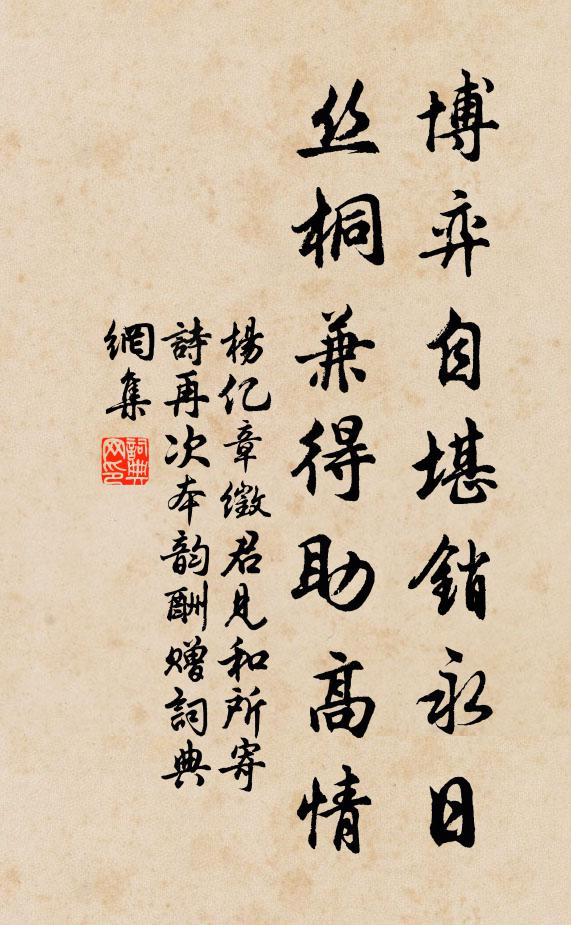 博弈自堪銷永日
丝桐兼得助高情
楊亿章徵君見和所寄
詩再次本韵酬贈詞典
網集
詞典
网印